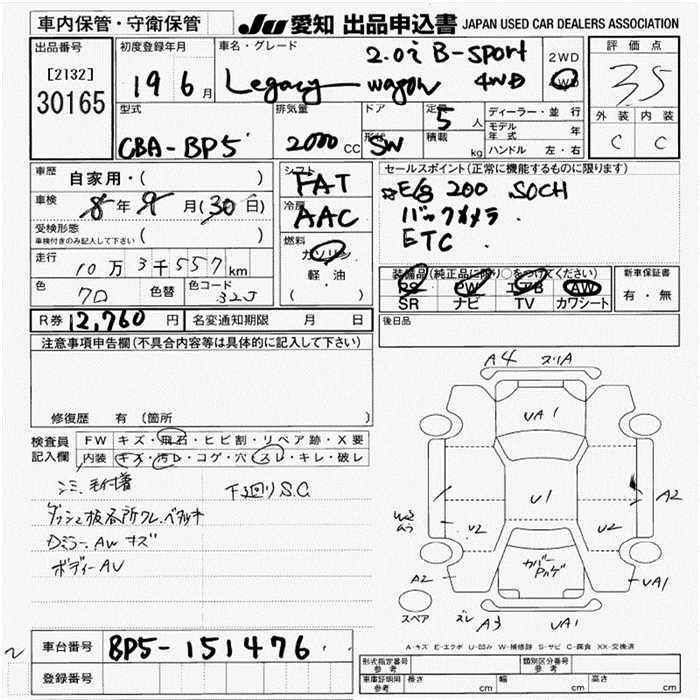 車内保管・守衛保管
JU 愛知 出品申込書 JAPAN USED CAR DEALERS ASSOCIATION
出品番号
[2132]
30165
初度登録年月
19 6 月
車名・グレード
2.0i B-Sport
Legacy wagon 4WD
2WD
4WD
評価点
3.5
外装 内装
C C
型式
CBA-BP5
排気量
2000 CC
ドア
形状
SW
定員
5 人
積載
kg
ディーラー・並行
モデル年式 年
ハンドル 左・右
車歴 自家用・( )
車検 8 年 9 月 (30 日)
受検形態
車検付きのみ記入して下さい ( )
走行
10万3千557 km
色 クロ 色替 色コード 32J
シフト
FAT
冷房
AAC
燃料
ガソリン
軽・油
( )
セールスポイント(正常に機能するものに限ります)
☆E/G 200 SOCH
バックカメラ
ETC
装備品(純正品に限り○をつけてください)
PS PW エアB AW
SR ナビ TV カワシート
新車保証書
有・無
R券 12,760 円 名変通知期限 月 日
後日品
注意事項申告欄(不具合内容等は具体的に記入して下さい)
修復歴 有 (箇所 )
検査員
記入欄
FW キズ・飛石・ヒビ割・リペア跡・X要
内装 キズ・汚レ・コゲ・穴・スレ・キレ・破レ
シミ、毛付着 下廻りS.C
ダッシュ板各所ワレ、ベタツキ
Dミラー、AW キズ
ボディーAU
A4 スリA
UA1
U1
A2
U2 U2
カバー
ハゲ
A2
UA1
スペア
ズレ A3 UA1
A-キズ E-エクボ U-凹み W-補修跡 S-サビ C-腐食 XX-交換済
車台番号 BP5-151476
登録番号
形式指定番号
参考
類別区分番号
参考
車庫証明用
参考
長さ cm 幅 cm 高さ cm